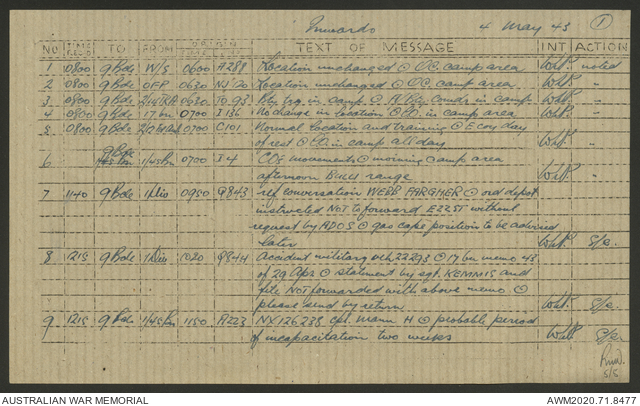 Inwards 4 May 43 1
NO TIME REC'D TO FROM ORIGIN TIME NUMB TEXT OF MESSAGE INT ACTION
1 0800 9 Bde W/S 0600 A288 Location unchanged ⊙ OC. camp area WLP. noted
2 0800 9 Bde OFP 0630 NJ '20 Location unchanged ⊙ OC. camp area. WLP. "
3 0800 9 Bde 0630 TO 93 Bty Hrq. in camp ⊙ Bty Comdr in camp WLP. "
4 0800 9 Bde 17 Bn 0700 I 136 No change in location ⊙ CO. in camp area
5 0800 9 Bde 0700 C101 Normal location and training ⊙ E coy day
of rest ⊙ CO. in camp all day WLP. "
6 9 Bde 1/45 Bn 0700 I 4 CO's movements ⊙ morning camp area
afternoon BULLI range WLP. "
7 1140 9 Bde 1 Div 0950 Q843 ref conversation WEBB PARGHER ⊙ ord depot
instructed NOT to forward without
request by ADOS ⊙ gas cape position to be advised
later WLP. S/c.
8 1215 9 Bde 1 Div 1020 Q844 Accident military veh 22293 ⊙ 17 bn memo 43
of 29 Apr ⊙ statement by sgt. KEMMIS and
file NOT forwarded with above memo ⊙
please send by return WLP. S/c.
9 1215 9 Bde 1/45 Bn 1150 A223 NX126238 cpl Mann H ⊙ probable period
of incapacitation two weeks WLP. S/c.
5/5
AUSTRALIAN WAR MEMORIAL AWM2020.71.8477